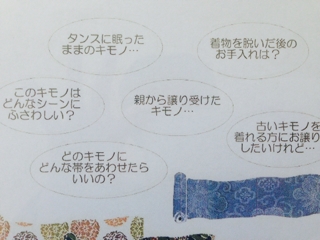 タンスに眠った
ままのキモノ…
着物を脱いだ後の
お手入れは？
このキモノは
どんなシーンに
ふさわしい？
親から譲り受けた
キモノ…
古いキモノを
着れる方にお譲り
したいけれど…
どのキモノに
どんな帯をあわせたら
いいの？